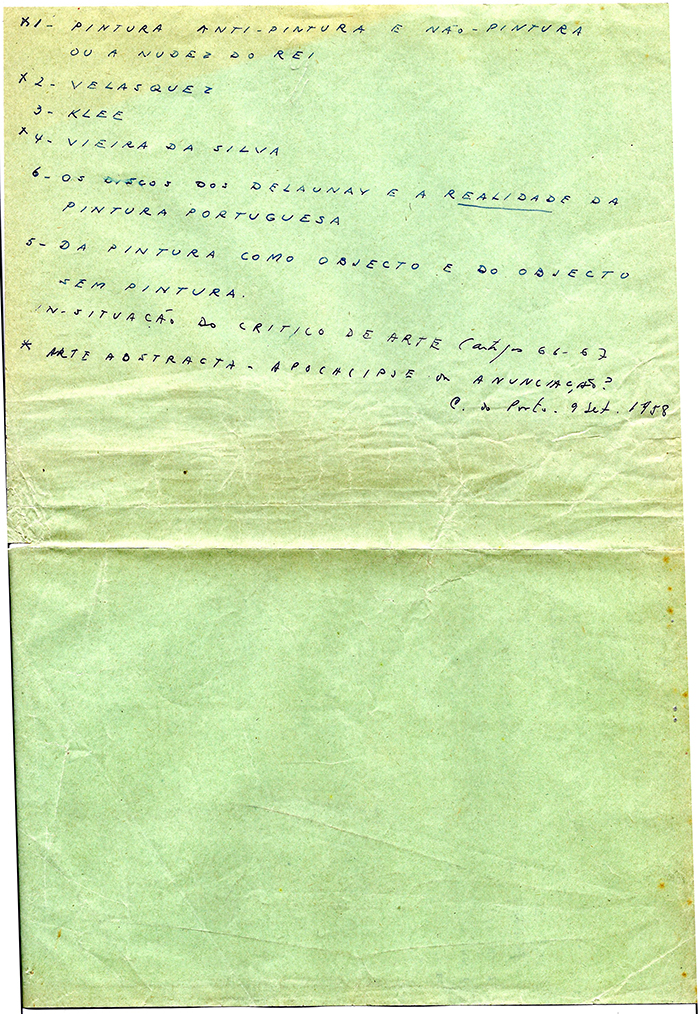 *1- PINTURA ANTI-PINTURA E NÃO-PINTURA
OU A NUDEZ DO REI
*2- VELASQUEZ
3- KLEE
*4- VIEIRA DA SILVA
6- OS DISCOS DOS DELAUNAY E A REALIDADE DA
PINTURA PORTUGUESA
5- DA PINTURA COMO OBJECTO E DO OBJECTO
SEM PINTURA.
IN-SITUAÇÃO DO CRITICO DE ARTE (artigos 66-67
* ARTE ABSTRACTA - APOCALIPSE ou ANUNCIAÇÃO?
C. do Porto. 9 Set. 1958